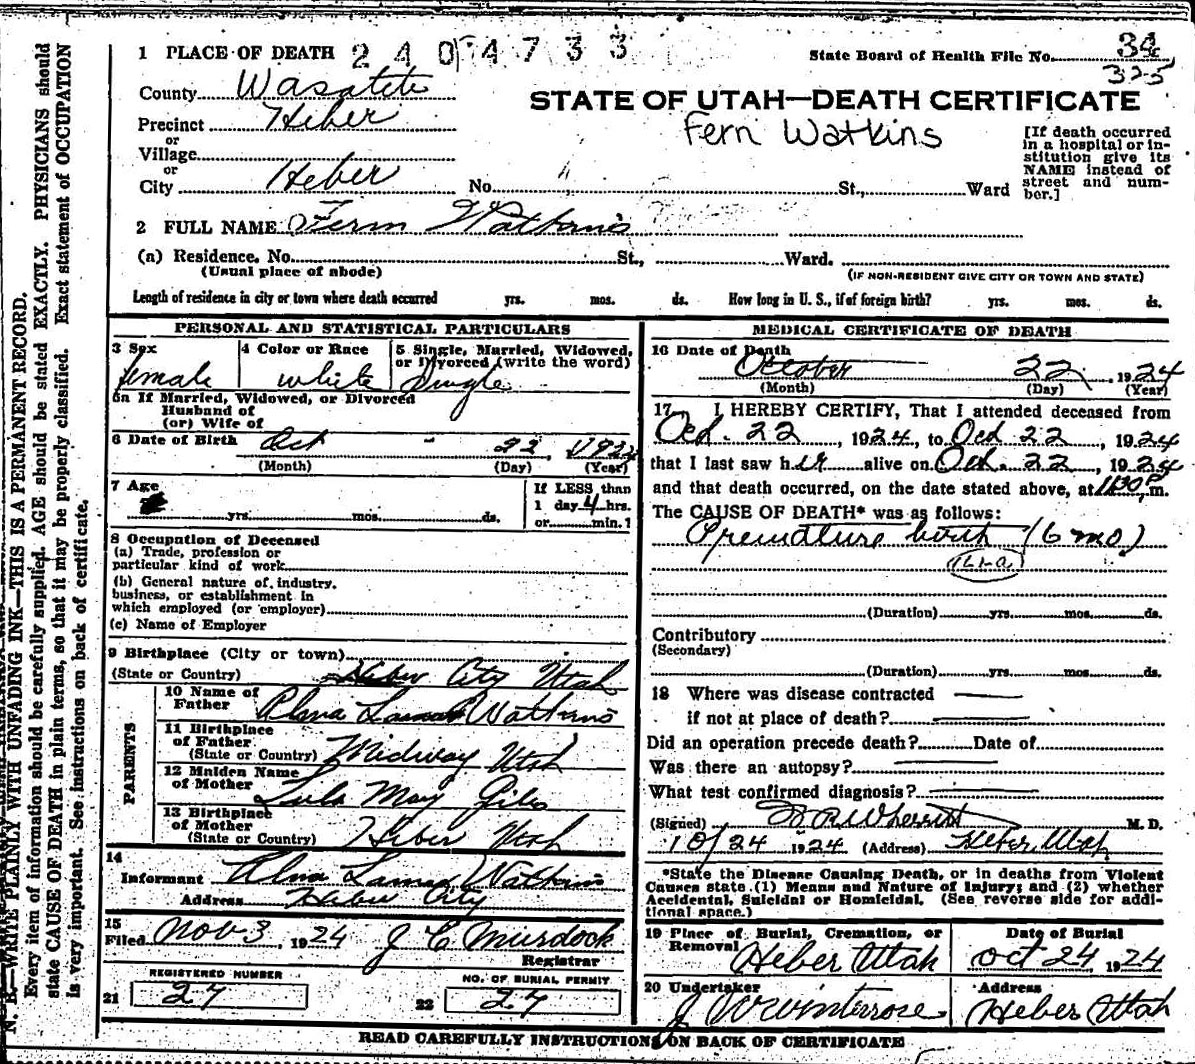 1 PLACE OF DEATH 2404733
State Board of Health File No. 34
325
County Wasatch
STATE OF UTAH—DEATH CERTIFICATE
Precinct Heber
Fern Watkins
or
Village
or
City Heber No. St., Ward
[If death occurred
in a hospital or in-
stitution give its
NAME instead of
street and num-
ber.]
2 FULL NAME Fern Watkins
(a) Residence. No. St., Ward.
(Usual place of abode)
(IF NON-RESIDENT GIVE CITY OR TOWN AND STATE)
Length of residence in city or town where death occurred yrs. mos. ds. How long in U. S., if of foreign birth? yrs. mos. ds.
PERSONAL AND STATISTICAL PARTICULARS
3 Sex 4 Color or Race 5 Single, Married, Widowed,
or Divorced (write the word)
female white Single
5a If Married, Widowed, or Divorced
Husband of
(or) Wife of
6 Date of Birth Oct 22 1924
(Month) (Day) (Year)
7 Age
yrs. mos. ds.
If LESS than
1 day 4 hrs.
or min.?
8 Occupation of Deceased
(a) Trade, profession or
particular kind of work
(b) General nature of industry,
business, or establishment in
which employed (or employer)
(c) Name of Employer
9 Birthplace (City or town)
(State or Country) Heber City Utah
PARENTS
10 Name of
Father Alma Lamar Watkins
11 Birthplace
of Father
(State or Country) Midway Utah
12 Maiden Name
of Mother Lula May Giles
13 Birthplace
of Mother
(State or Country) Heber Utah
14
Informant Alma Lamar Watkins
Address Heber City
15
Filed Nov 3, 1924 J C Murdock
Registrar
REGISTERED NUMBER NO. OF BURIAL PERMIT
21 27 22 27
MEDICAL CERTIFICATE OF DEATH
16 Date of Death
October 22, 1924
(Month) (Day) (Year)
17 I HEREBY CERTIFY, That I attended deceased from
Oct. 22, 1924, to Oct 22, 1924
that I last saw her alive on Oct. 22, 1924
and that death occurred, on the date stated above, at 1130 P m.
The CAUSE OF DEATH* was as follows:
Premature birth (6 mo)
161-a
(Duration) yrs. mos. ds.
Contributory
(Secondary)
(Duration) yrs. mos. ds.
18 Where was disease contracted
if not at place of death?
Did an operation precede death? Date of
Was there an autopsy?
What test confirmed diagnosis?
(Signed) W R Wherritt M. D.
10/24 1924 (Address) Heber, Utah
*State the Disease Causing Death, or in deaths from Violent
Causes state (1) Means and Nature of Injury; and (2) whether
Accidental, Suicidal or Homicidal. (See reverse side for addi-
tional space.)
19 Place of Burial, Cremation, or
Removal Heber Utah
Date of Burial
Oct 24 1924
20 Undertaker
J W Winterrose
Address
Heber Utah
READ CAREFULLY INSTRUCTIONS ON BACK OF CERTIFICATE
N. B.—WRITE PLAINLY WITH UNFADING INK—THIS IS A PERMANENT RECORD.
Every item of information should be carefully supplied. AGE should be stated EXACTLY. PHYSICIANS should
state CAUSE OF DEATH in plain terms, so that it may be properly classified. Exact statement of OCCUPATION
is very important. See instructions on back of certificate.